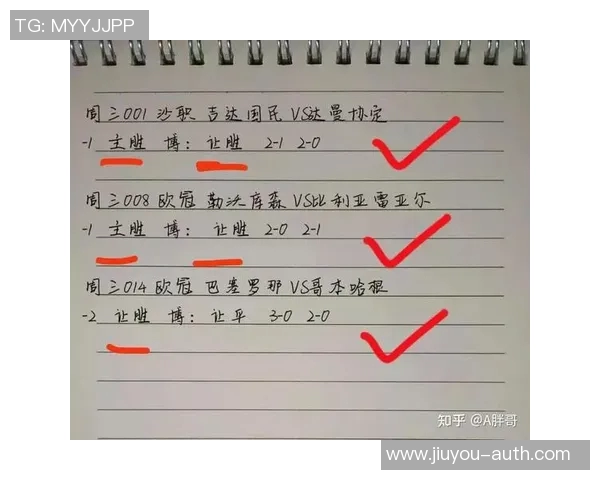 TG: MYYJJPP
周三001 沙职 吉达国民 VS达曼协定
-1 主胜 博: 让胜 2-1 2-0
周三008 欧冠 勒沃库森 VS比利亚雷亚尔
-1 主胜 博: 让胜 2-0 2-1
周三014 欧冠 巴塞罗那 VS哥本哈根
-2 让胜 博: 让平 3-0 2-0
知乎 @A胖哥
www.jiuyou-auth.com